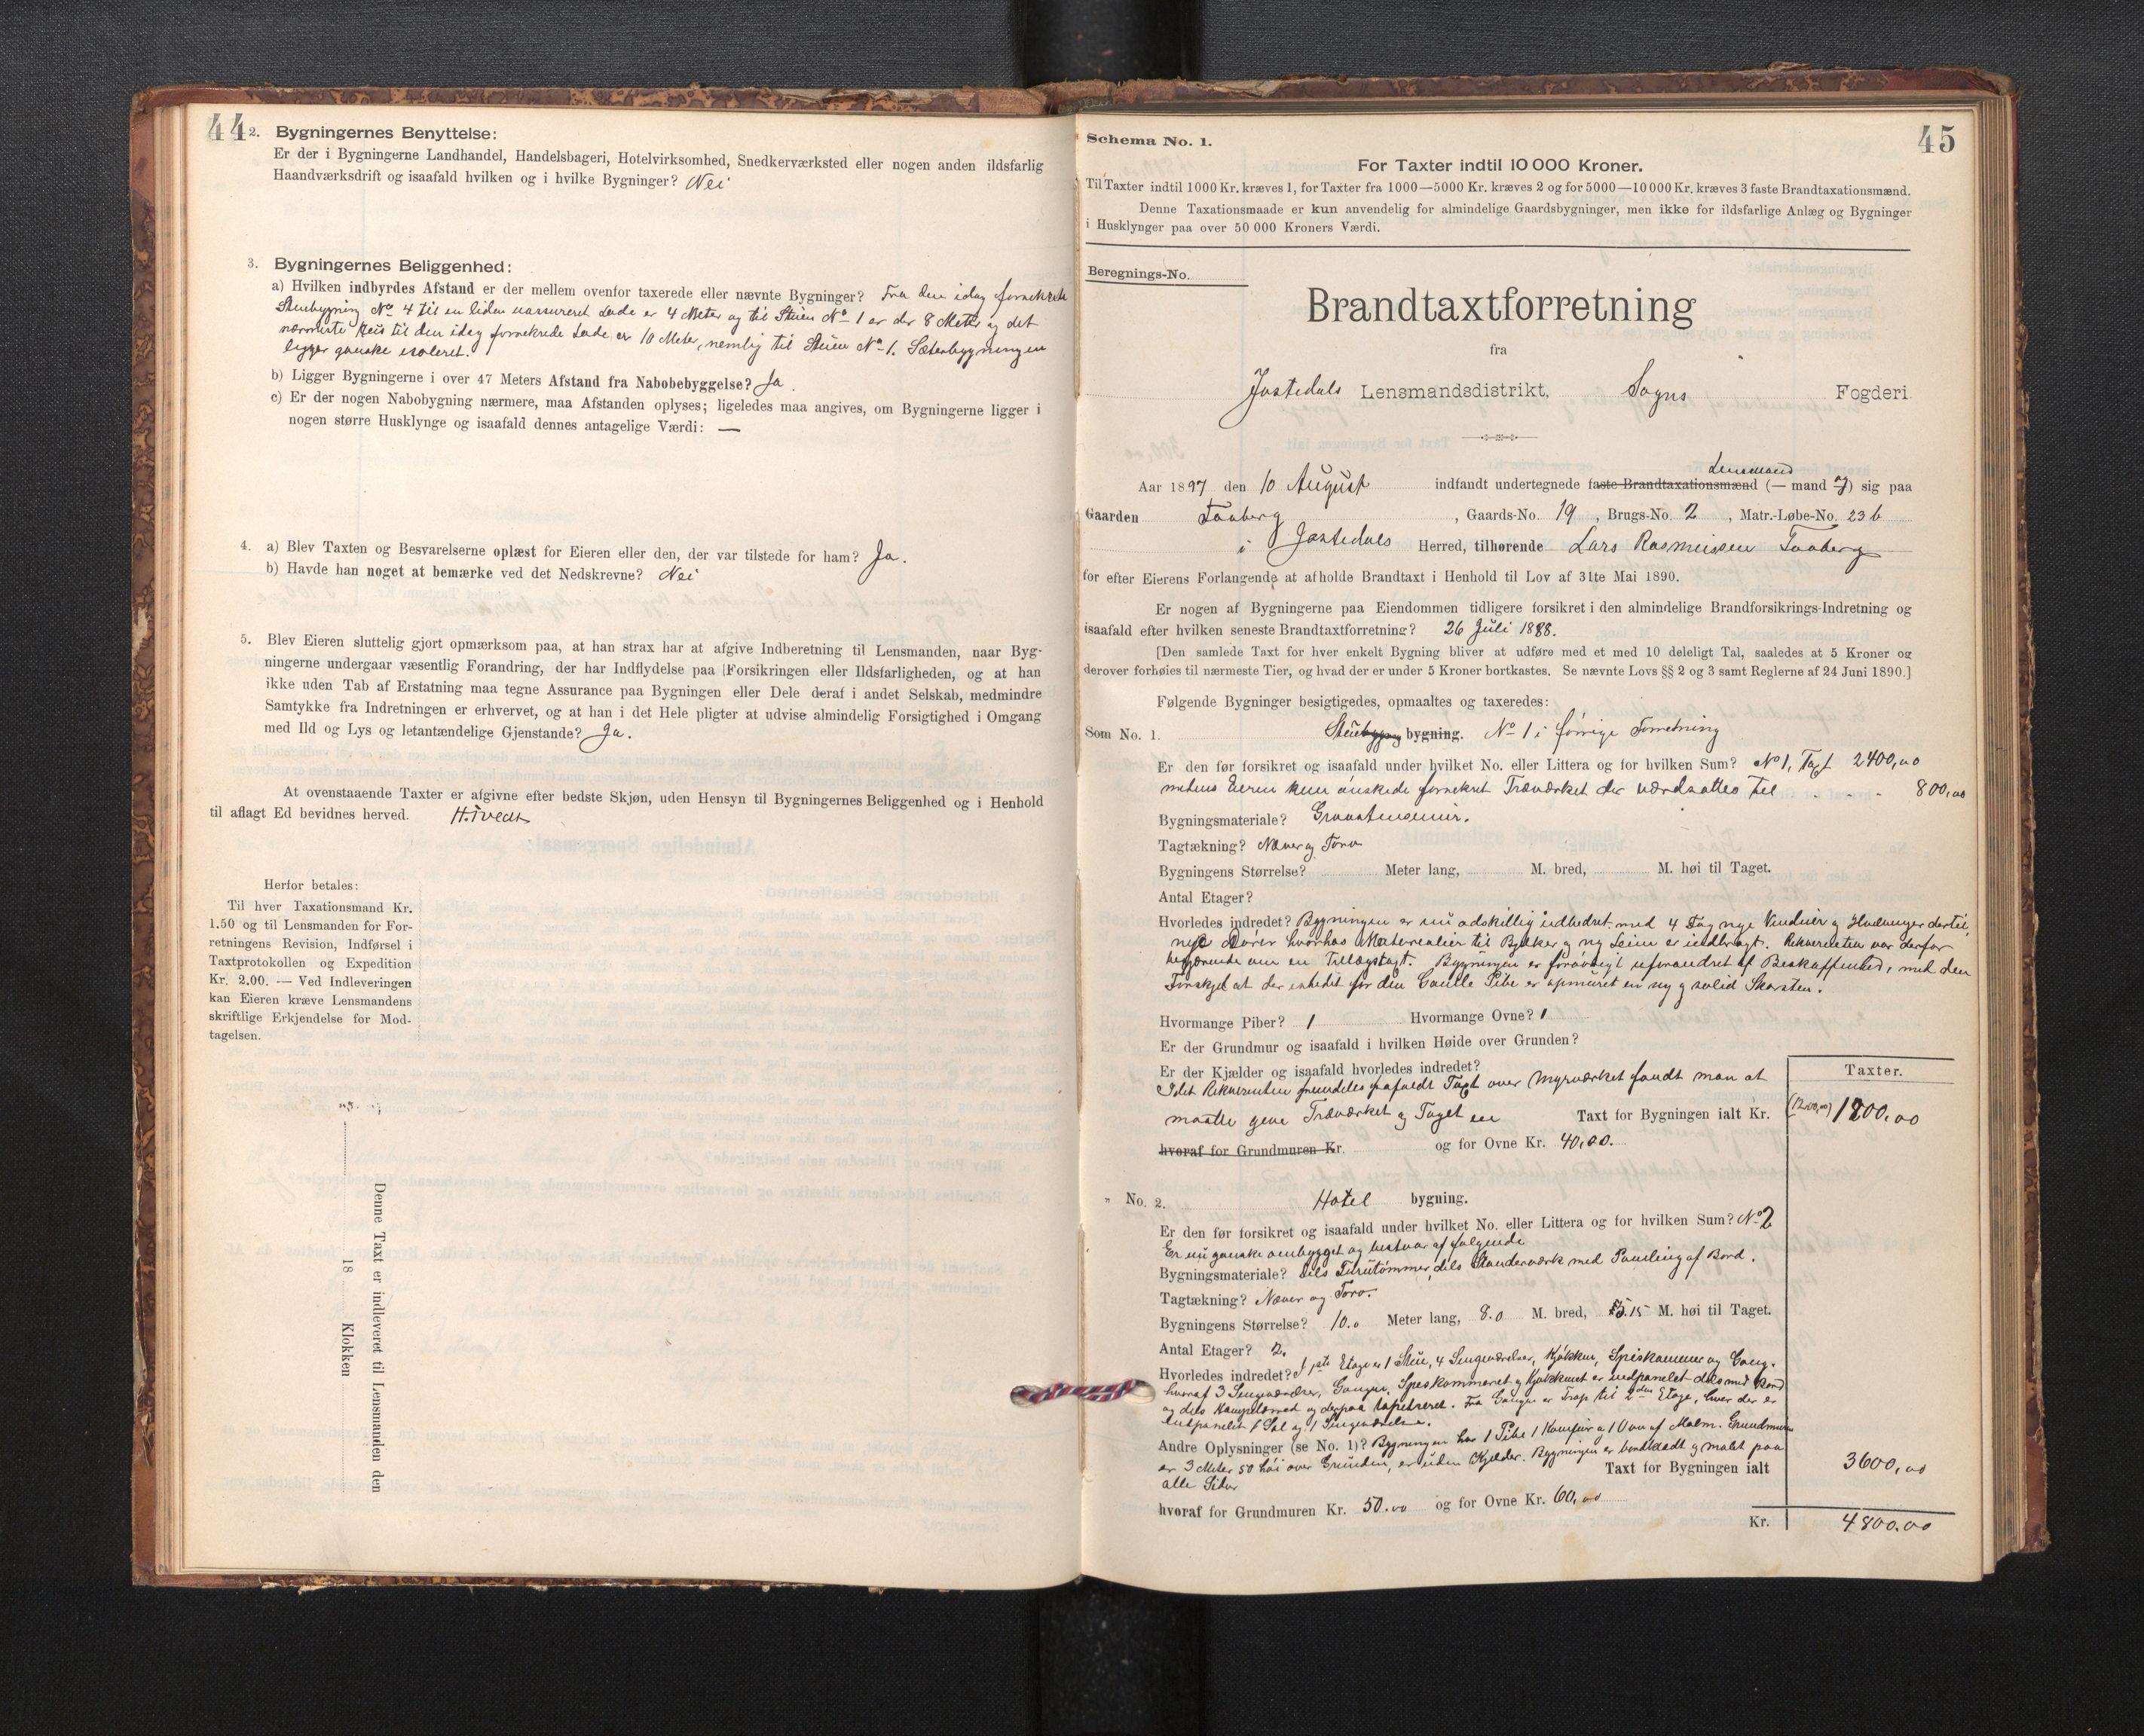 44
2. Bygningernes Benyttelse:
Er der i Bygningerne Landhandel, Handelsbageri, Hotelvirksomhed, Snedkerværksted eller nogen anden ildsfarlig
Haandværksdrift og isaafald hvilken og i hvilke Bygninger? Nei
3. Bygningernes Beliggenhed:
a) Hvilken indbyrdes Afstand er der mellem ovenfor taxerede eller nævnte Bygninger? Fra den idag forsikrede
Stuebygning No 4 til en liden uassureret Lade er 4 Meter og til Stuen No 1 er der 8 Meter og det
nærmeste Huus til den idag forsikrede Lade er 10 Meter, nemlig til Stuen No 1. Sæterbygningen
ligger ganske isoleret.
b) Ligger Bygningerne i over 47 Meters Afstand fra Nabobebyggelse? Ja.
c) Er der nogen Nabobygning nærmere, maa Afstanden oplyses; ligeledes maa angives, om Bygningerne ligger i
nogen større Husklynge og isaafald dennes antagelige Værdi: —
4. a) Blev Taxten og Besvarelserne oplæst for Eieren eller den, der var tilstede for ham? Ja.
b) Havde han noget at bemærke ved det Nedskrevne? Nei
5. Blev Eieren sluttelig gjort opmærksom paa, at han strax har at afgive Indberetning til Lensmanden, naar Byg-
ningerne undergaar væsentlig Forandring, der har Indflydelse paa Forsikringen eller Ildsfarligheden, og at han
ikke uden Tab af Erstatning maa tegne Assurance paa Bygningen eller Dele deraf i andet Selskab, medmindre
Samtykke fra Indretningen er erhvervet, og at han i det Hele pligter at udvise almindelig Forsigtighed i Omgang
med Ild og Lys og letantændelige Gjenstande? Ja.
At ovenstaaende Taxter er afgivne efter bedste Skjøn, uden Hensyn til Bygningernes Beliggenhed og i Henhold
til aflagt Ed bevidnes herved. H. Tvedt
Herfor betales:
Til hver Taxationsmand Kr.
1.50 og til Lensmanden for For-
retningens Revision, Indførsel i
Taxtprotokollen og Expedition
Kr. 2.00. — Ved Indleveringen
kan Eieren kræve Lensmandens
skriftlige Erkjendelse for Mod-
tagelsen.
Denne Taxt er indleveret til Lensmanden den
18 Klokken
45
Schema No. 1.
For Taxter indtil 10 000 Kroner.
Til Taxter indtil 1000 Kr. kræves 1, for Taxter fra 1000—5000 Kr. kræves 2 og for 5000—10 000 Kr. kræves 3 faste Brandtaxationsmænd.
Denne Taxationsmaade er kun anvendelig for almindelige Gaardsbygninger, men ikke for ildsfarlige Anlæg og Bygninger
i Husklynger paa over 50 000 Kroners Værdi.
Beregnings-No.
Brandtaxtforretning
fra
Jostedals Lensmandsdistrikt, Sogns Fogderi
Lensmand
Aar 1897 den 10 August indfandt undertegnede faste Brandtaxationsmænd (— mand og) sig paa
Gaarden Faaberg, Gaards-No. 19, Brugs-No. 2, Matr.-Løbe-No. 23 b
i Jostedals Herred, tilhørende Lars Rasmussen Faaberg
for efter Eierens Forlangende at afholde Brandtaxt i Henhold til Lov af 31te Mai 1890.
Er nogen af Bygningerne paa Eiendommen tidligere forsikret i den almindelige Brandforsikrings-Indretning og
isaafald efter hvilken seneste Brandtaxtforretning? 26 Juli 1888.
[Den samlede Taxt for hver enkelt Bygning bliver at udføre med et med 10 deleligt Tal, saaledes at 5 Kroner og
derover forhøies til nærmeste Tier, og hvad der er under 5 Kroner bortkastes. Se nævnte Lovs §§ 2 og 3 samt Reglerne af 24 Juni 1890.]
Følgende Bygninger besigtigedes, opmaaltes og taxeredes:
Som No. 1. Stuebygng bygning. No 1 i forrige Forretning
Er den før forsikret og isaafald under hvilket No. eller Littera og for hvilken Sum? No 1, Taxt 2400,00
medens Eieren kun ønskede forsikret Træværket der værdsattes til - - - 800,00
Bygningsmateriale?
Tagtækning? Næver og Torv
Bygningens Størrelse? Meter lang, M. bred, M. høi til Taget.
Antal Etager?
Hvorledes indredet? Bygningen er nu adskillig udbedret med 4 Fag nye Vinduer og dertil,
nye Dører hvorhos Materialier til Bjelker og ny er indbragt. Rekvirenten var derfor
begjærende om en Tillægstaxt. Bygningen er forøvrigt uforandret af Beskaffenhed, med den
Forskjel at der istedet for den Gamle Pibe er opmuret en ny og solid Skorsten.
Hvormange Piber? 1 Hvormange Ovne? 1
Er der Grundmur og isaafald i hvilken Høide over Grunden?
Er der Kjælder og isaafald hvorledes indredet?
Idet Rekvirenten fremdeles frafaldt Taxt over Myrværket fandt man at
maatte give Træværket og Taget en Taxt for Bygningen ialt Kr. (1200,00) 1200,00
hvoraf for Grundmuren Kr. og for Ovne Kr. 40,00.
Taxter.
" No. 2. Hotel bygning.
Er den før forsikret og isaafald under hvilket No. eller Littera og for hvilken Sum? No 2
Er nu ganske ombygget og bestaar af følgende
Bygningsmateriale? dels Furutømmer, dels Standerværk med Paneling af Bord.
Tagtækning? Næver og Torv.
Bygningens Størrelse? 10.0 Meter lang, 8.0 M. bred, 5.15 M. høi til Taget.
Antal Etager? 2.
Hvorledes indredet? I 1ste Etage er 1 Stue, 4 Sengeværelser, Kjøkken, Spiskammer og Gang.
hvoraf 3 Sengeværelser, Gangen, Speskammeret og Kjøkkenet er panelet dels med Bord
og dels og derpaa tapetseret. Fra Gangen er Trap til 2den Etage, hvor der er
1 Sal og 1 Sengeværelse.
Andre Oplysninger (se No. 1)? Bygningen har 1 Pibe 1 Komfur og 1 Ovn af Malm. Grundmuren
er 3 Meter 50 høi over Grunden, er uden Kjelder. Bygningen er bordklædt og malet paa
alle Sider Taxt for Bygningen ialt 3600,00
hvoraf for Grundmuren Kr. 50.00 og for Ovne Kr. 60,00
Kr. 4800.00